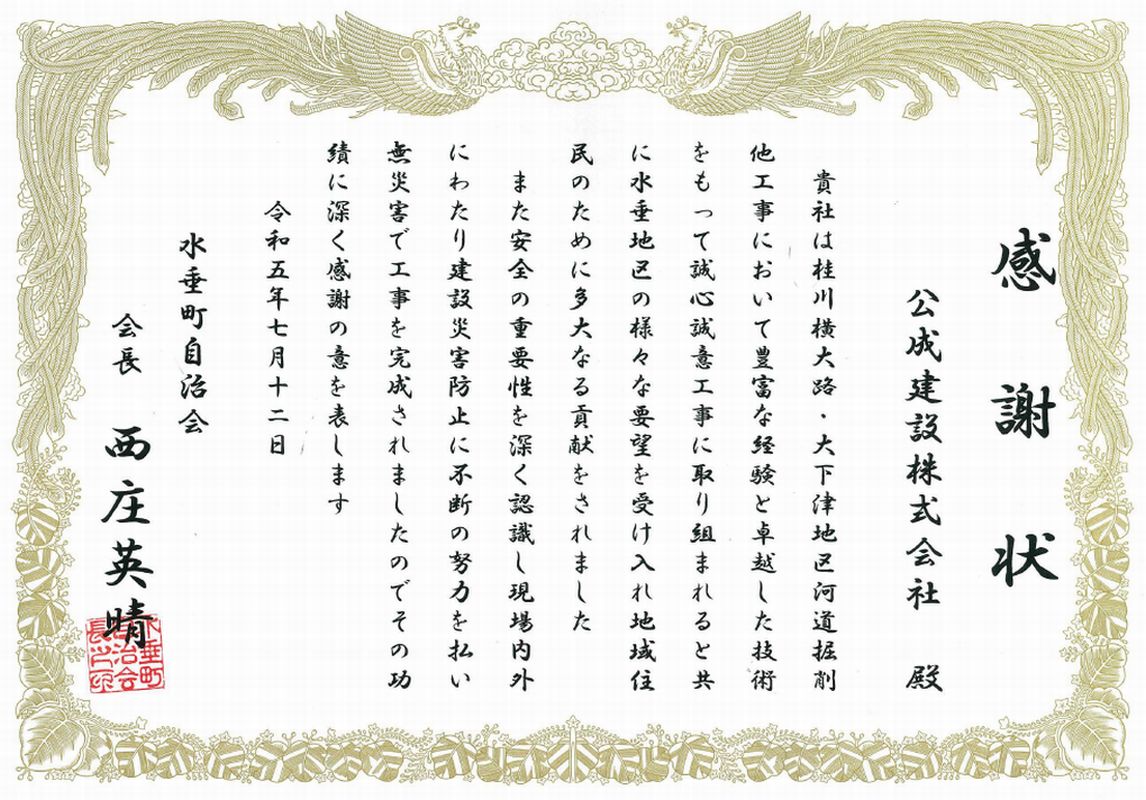 感謝状
公成建設株式会社 殿
貴社は桂川横大路・大下津地区河道掘削
他工事において豊富な経験と卓越した技術
をもって誠心誠意工事に取り組まれると共
に水垂地区の様々な要望を受け入れ地域住
民のために多大なる貢献をされました
また安全の重要性を深く認識し現場内外
にわたり建設災害防止に不断の努力を払い
無災害で工事を完成されましたのでその功
績に深く感謝の意を表します
令和五年七月十二日
水垂町自治会
会長 西庄英晴
水垂町
自治会
長之印